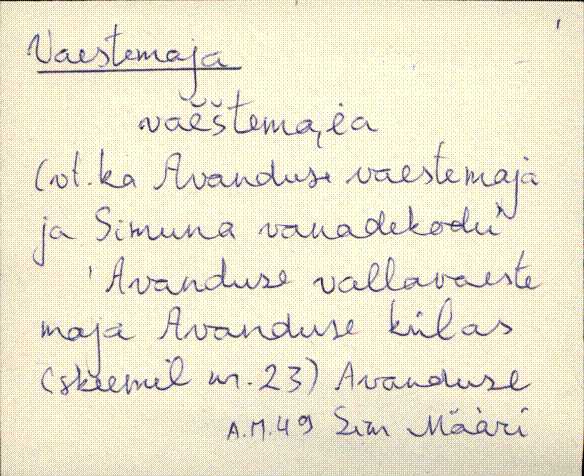 Vaestemaja
vaèštema,i̯a
(vt. ka Avanduse vaestemaja
ja Simuna vanadekodu"
'Avanduse vallavaeste
maja Avanduse külas
(skeemil nr. 23) Avanduse
A.M.49 Sim Määri